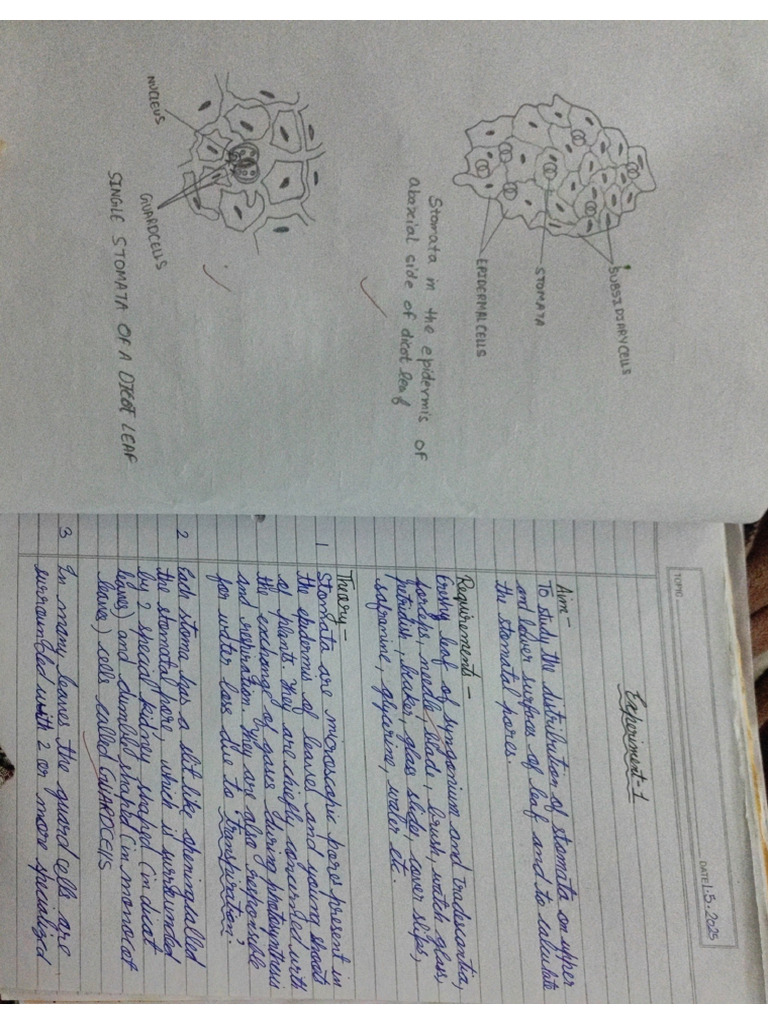 SUBSIDIARY CELLS
STOMATA
EPIDERMAL CELLS
Stomata in the epidermis OF
abaxial side of dicot leaf
NUCLEUS
GUARDCELLS
SINGLE STOMATA OF A DICOT LEAF
TOPIC
DATE 1.5.2025
Experiment-1
Aim -
To study the distribution of stomata on upper
and lower surfaces of leaf and to calculate
the stomatal pores.
Requirements -
leaf of and Tradescantia,
forceps, needle, blade, brush, watch glass,
petridish, beaker, glass slide, cover slips,
safranine, glycerine, water etc.
Theory -
1 Stomata are microscopic pores present in
the epidermis of leaves and young shoots
of plants. They are chiefly concerned with
the exchange of gases during photosynthesis
and respiration. They are also responsible
for water loss due to Transpiration.
2 Each stoma has a slit like opening called
the stomatal pore, which is surrounded
by 2 special kidney shaped (in dicot
leaves) and dumbel shaped (in monocot
leaves) cells called GUARDCELLS
3 In many leaves the guard cells are
surrounded with 2 or more specialized